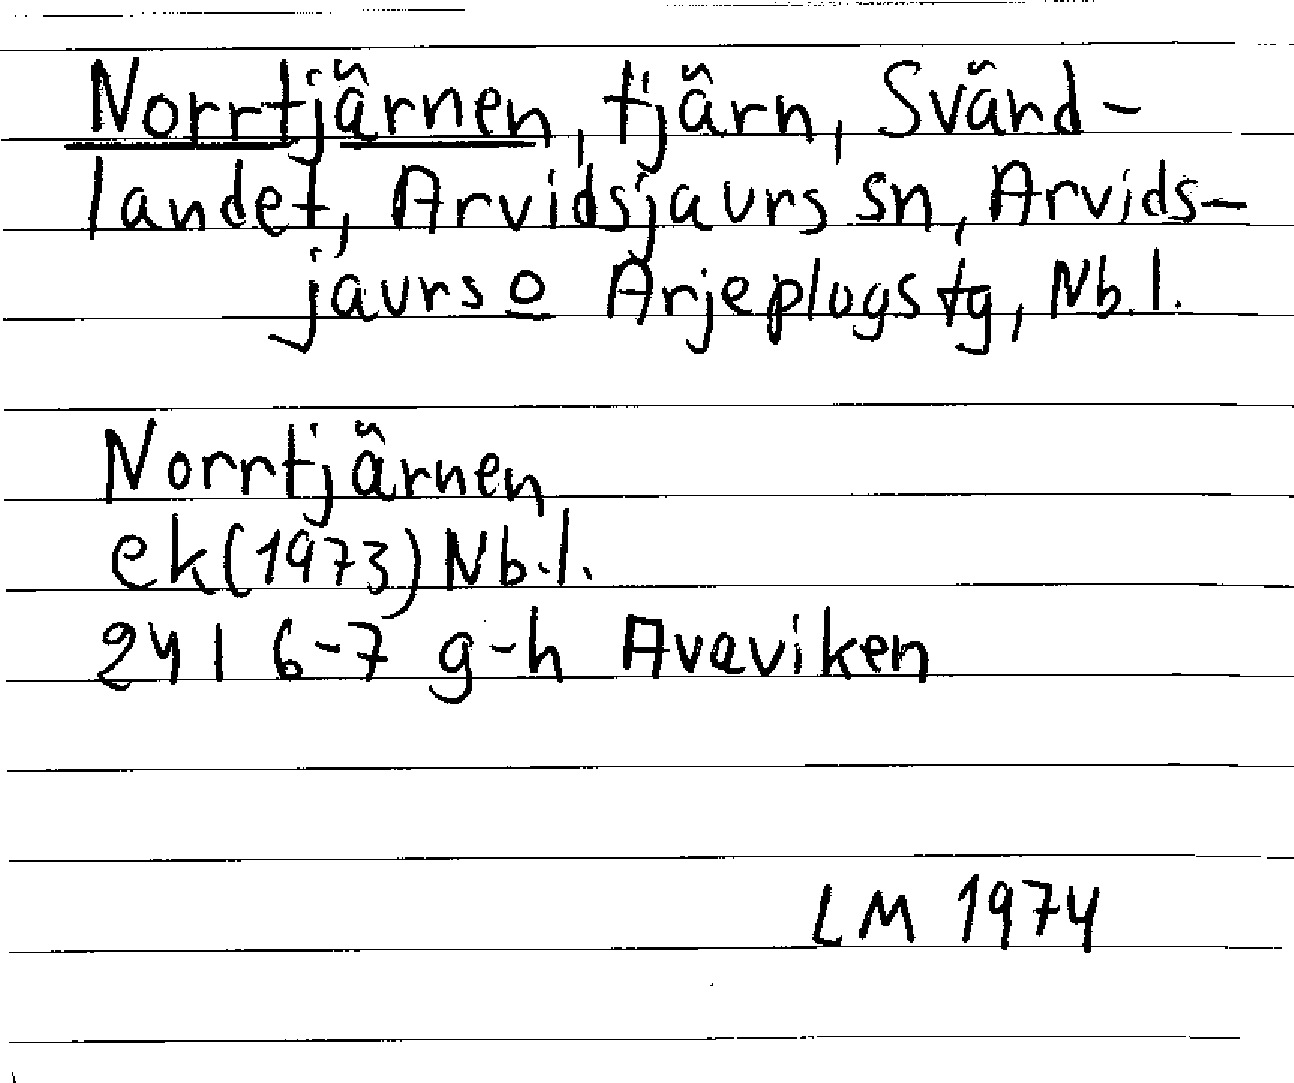 Norrtjärnen, tjärn, Svärd-
landet, Arvidsjaurs sn, Arvids-
jaurs o Arjeplogs tg, Nb.l.
Norrtjärnen
ek(1973) Nb.l.
24 I 6-7 g-h Avaviken
LM 1974